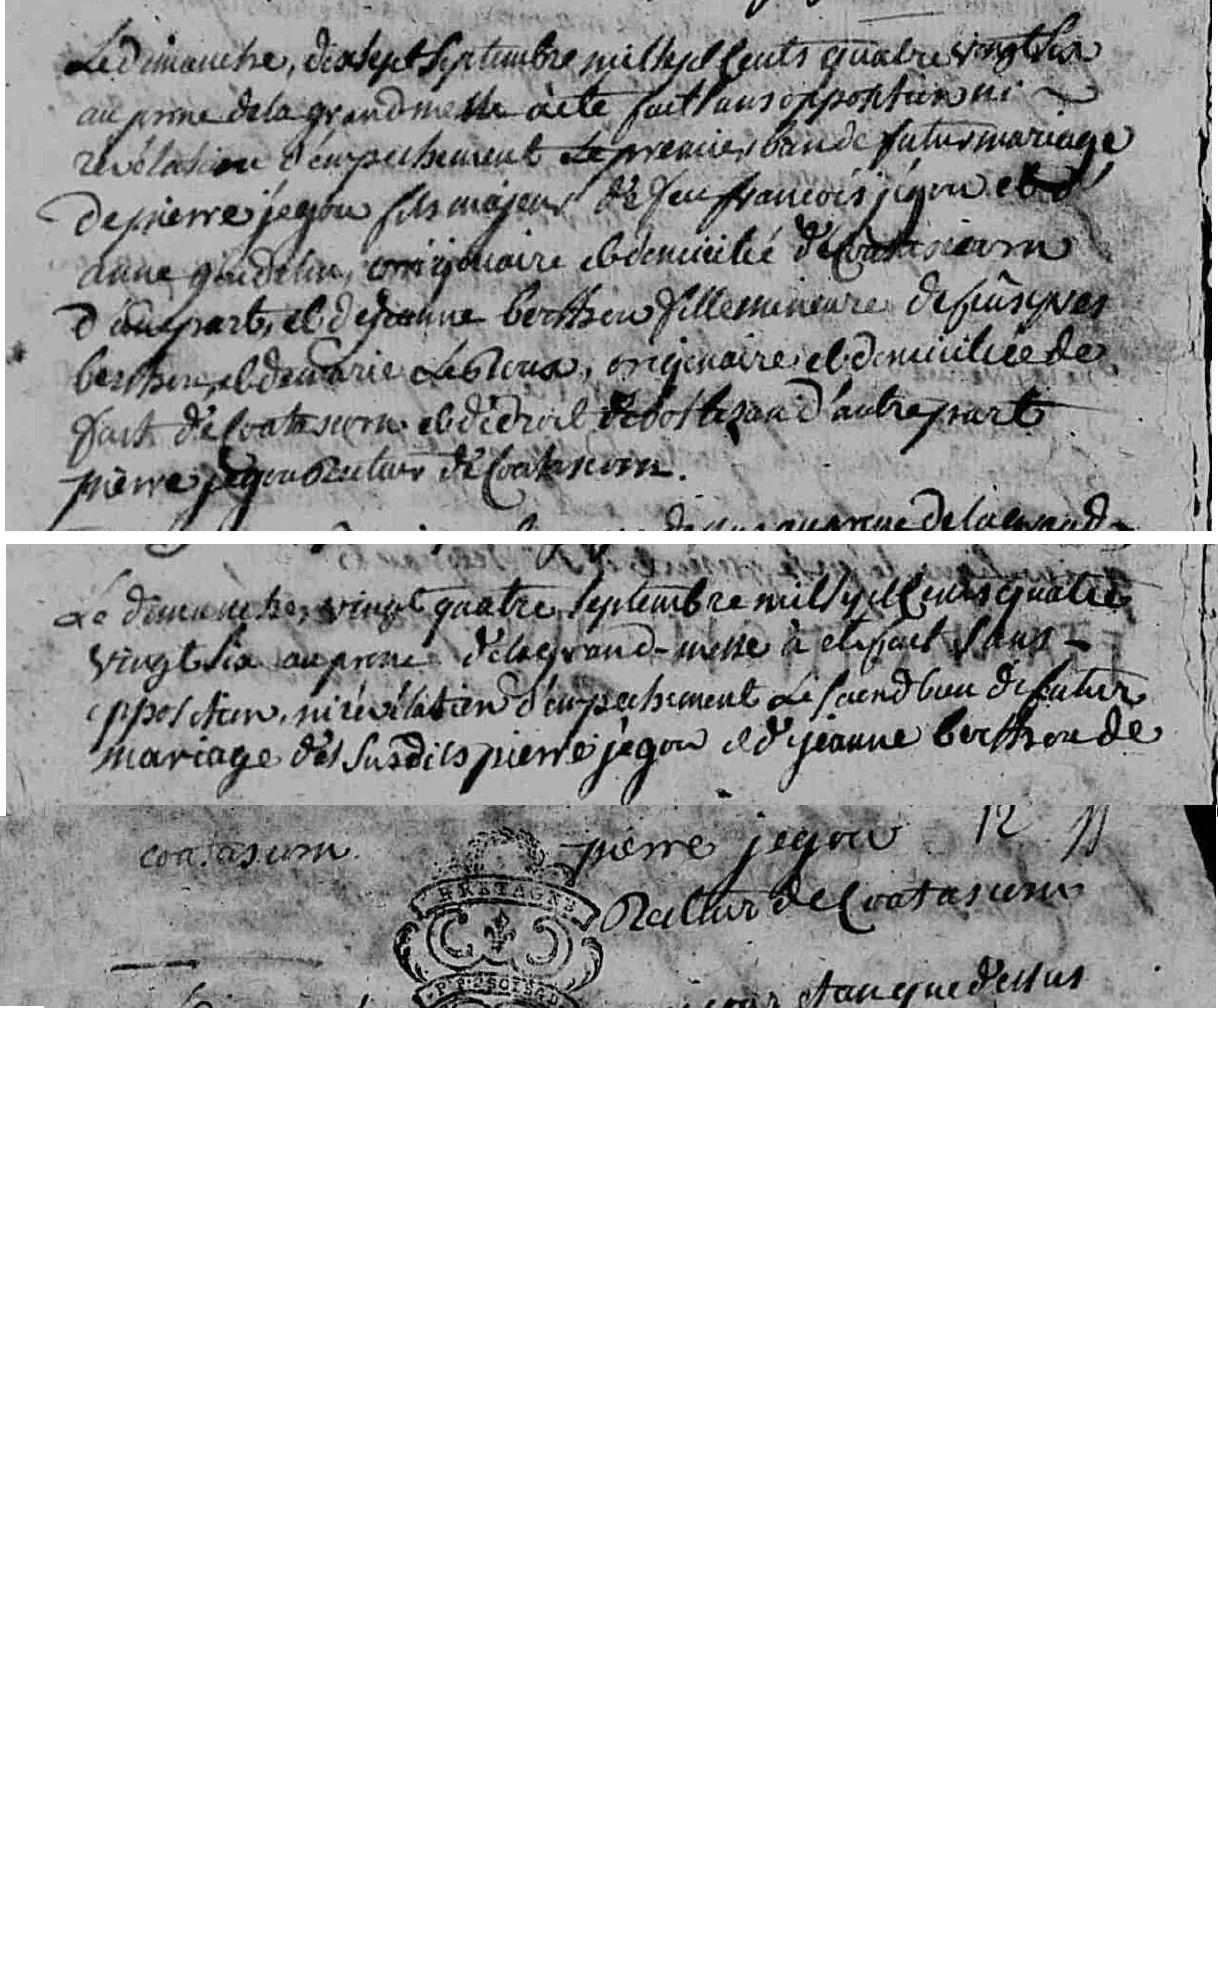 Le dimanche, dixsept septembre mil sept cents quatre vingt six
au prone de la grand messe à eté fait sans opposition ni
révélation d'empechement Le premier ban de futur mariage
de pierre jégou fils majeur de feu francois jégou et d'
anne originaire et domicilié de Coatascorn
d'une part, et de jeanne berthou fille mineure de feu yves
berthou, et de marie Le Roux, originaire et domiciliée de
fait de Coatascorn et de droit de botlezan d'autre part
pierre jegou Recteur de Coatascorn.
au prone de la grand
Le dimanche, vingt quatre septembre mil sept cents quatre
vingt six au prone de la grand-messe à eté fait sans -
opposition, ni révélation d'empechement Le second ban de futur
mariage des susdits pierre jégou et de jeanne berthou de
coatascorn. pierre jegou 12
BRETAGNE
Recteur de Coatascorn
jour et an que dessus